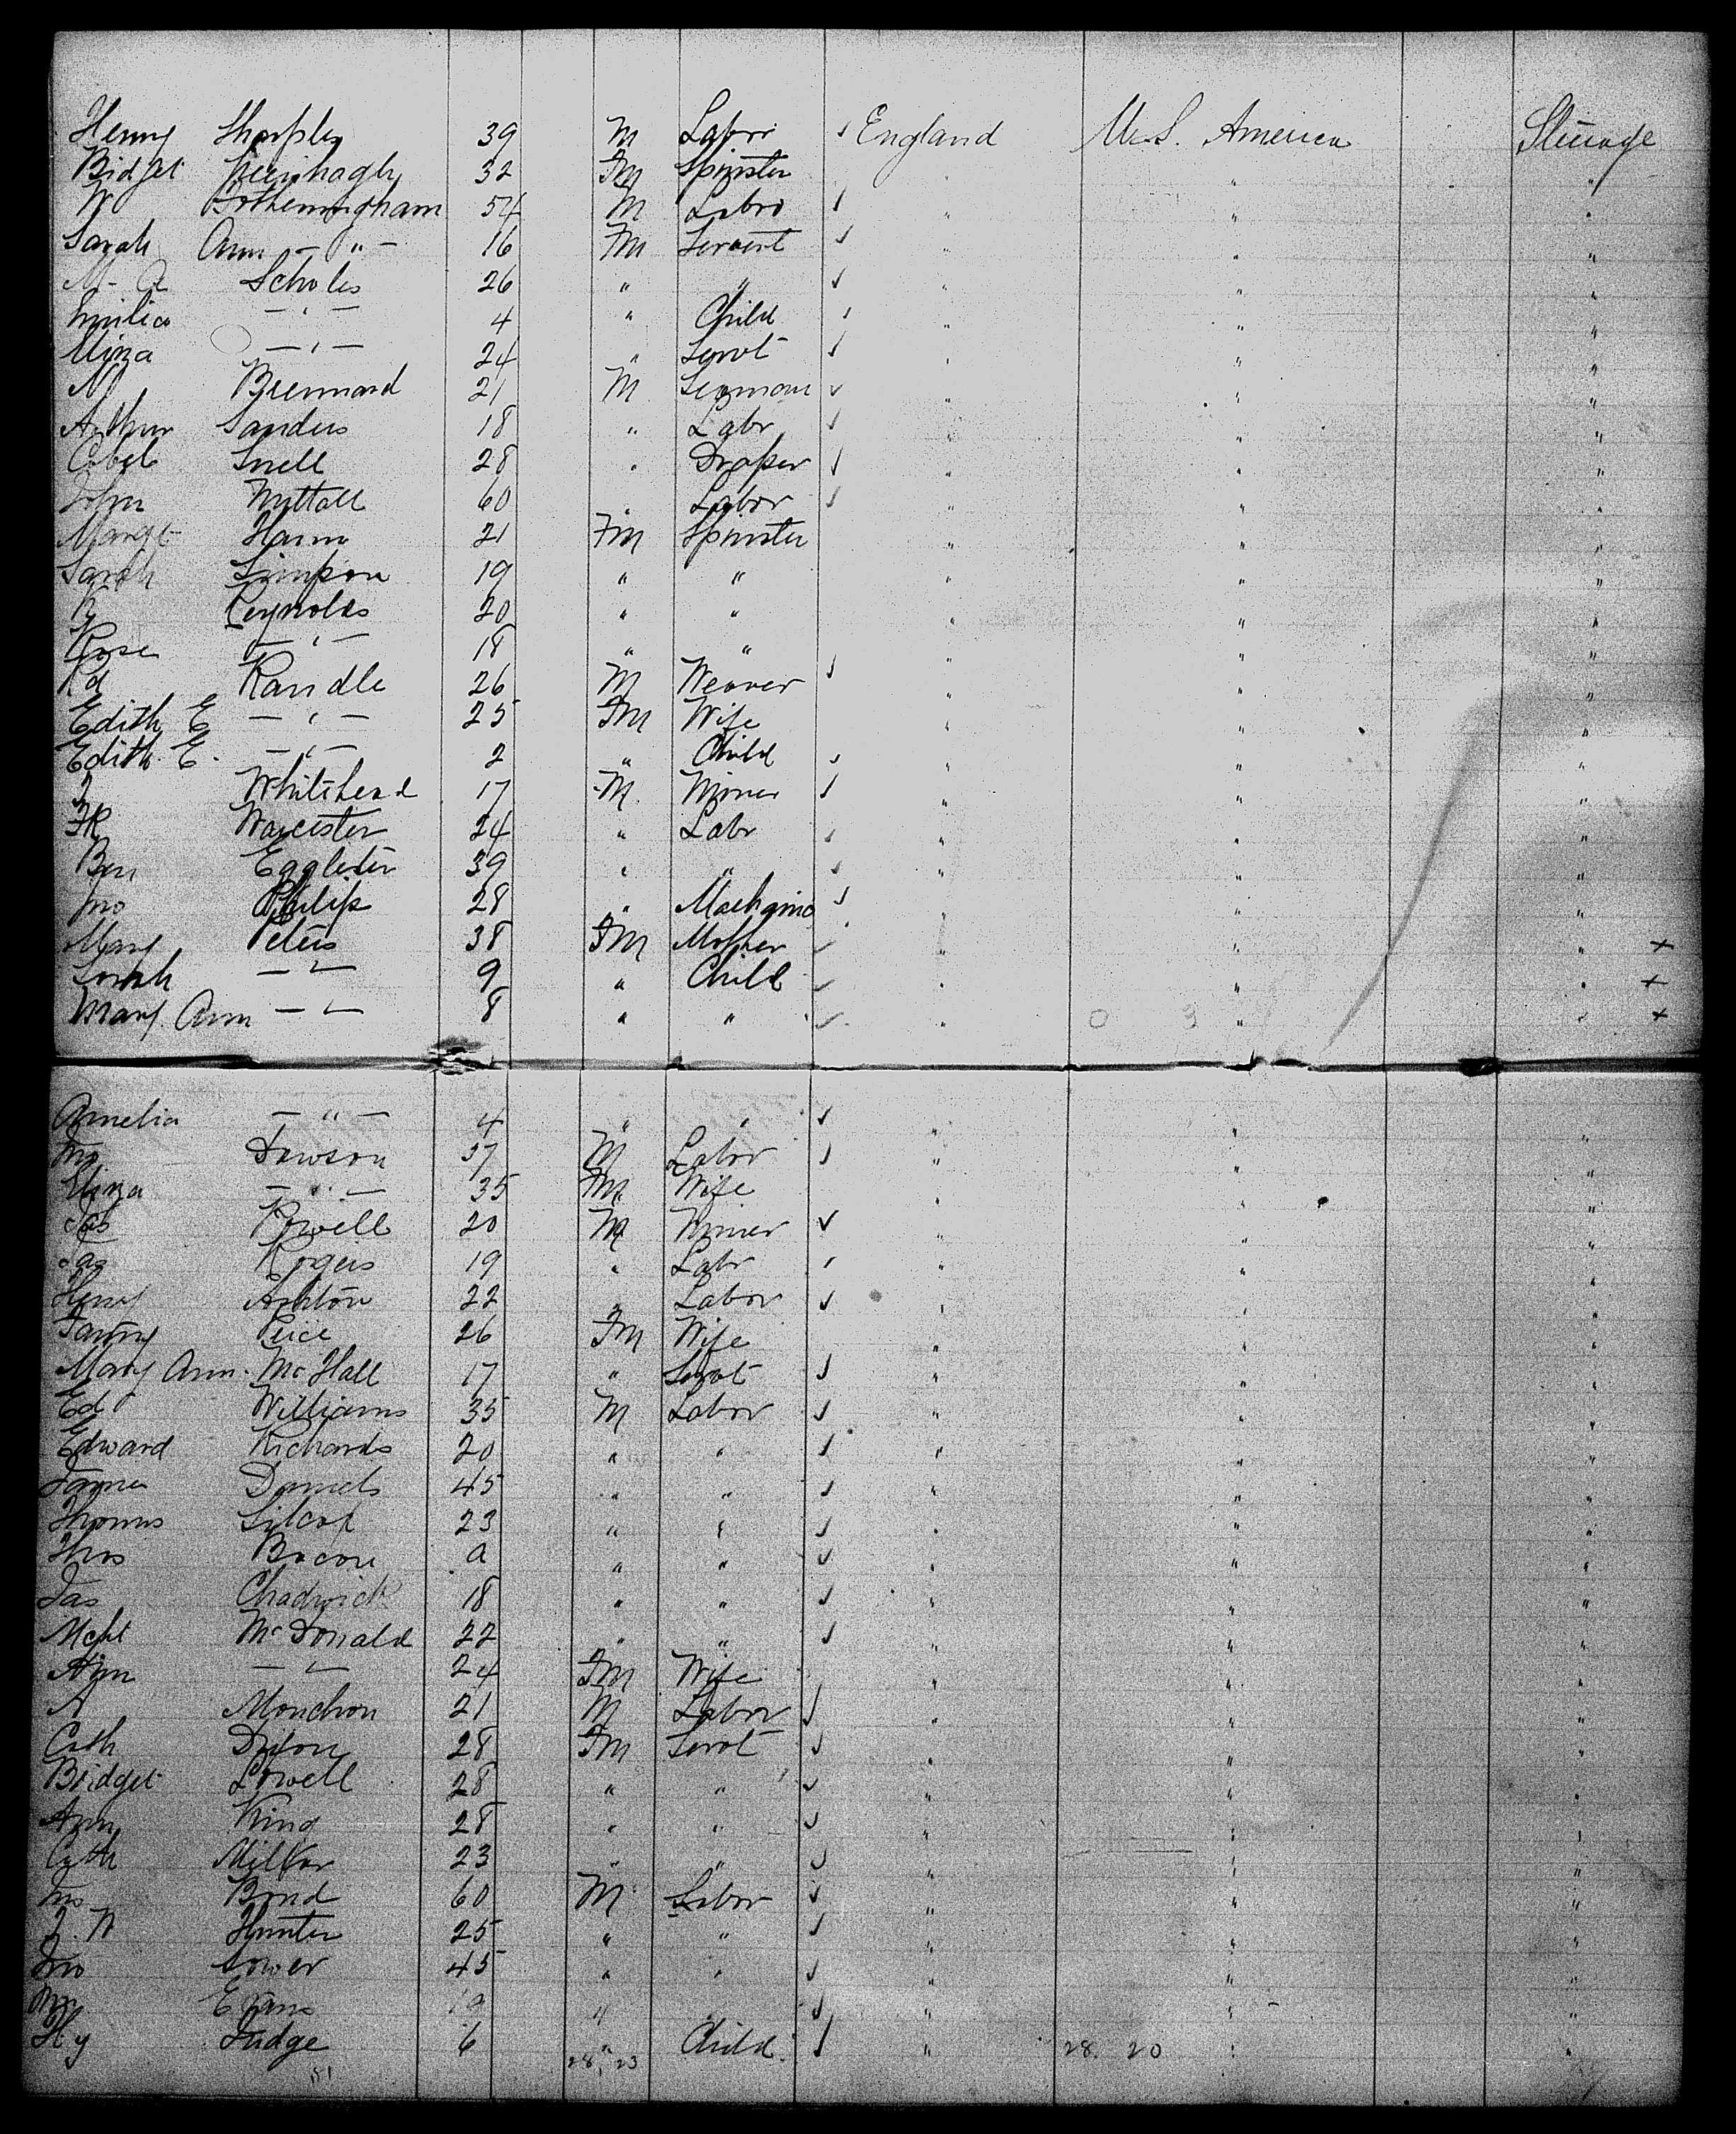 Henry Sharples 39 M Labor ✓ England U.S. America Steerage
Bidget 32 Fm Spinster " " "
W Bothemingham 54 M Labro ✓ " " "
Sarah Ann — " — 16 Fm Servent ✓ " " "
M. A Scholes 26 " " ✓ " " "
Emilia — " — 4 " Child ✓ " " "
Eliza — " — 24 " Servt ✓ " " "
M Brennard 21 M ✓ " " "
Arthur Sanders 18 " Labr ✓ " " "
Snell 28 " Draper ✓ " " "
John Nuttall 60 " Labor ✓ " " "
Margt 21 Fm Spinster " " "
Sarah Simpson 19 " " " " "
Reynolds 20 " " " " "
Rose — " — 18 " " " " "
Rd Randle 26 M Weaver ✓ " " "
Edith E — " — 25 Fm Wife " " "
Edith. E. — " — 2 " Child ✓ " " "
J Whitehead 17 M. Miner ✓ " " "
Fk Worcester 24 " Labr ✓ " " "
Ben Eggleton 39 " " ✓ " " "
Jno Philips 28 " ✓ " " "
Mary Peters 38 Fm Mother ✓ " " " +
Sarah — " — 9 " Child ✓ " " " +
Mary Ann — " — 8 " " ✓ " 0 3 " " +
Amelia — " — 4 " " ✓ " " "
Jno Dawson 37 M Labor ✓ " " "
Eliza — " — 35 Fm Wife " " "
Jas Powell 20 M Miner ✓ " " "
Jas Rogers 19 " Labr ✓ " " "
Henry Ashton 22 " Labor ✓ " " "
Fanny Price 26 Fm Wife " " "
Mary Ann. McHall 17 " Servt ✓ " " "
Ed Williams 35 M Labor ✓ " " "
Edward Richards 20 " " ✓ " " "
James Daniels 45 " " ✓ " " "
Thomas Silcot 23 " " ✓ " " "
Thos Bacon a " " ✓ " " "
Jas Chadwick 18 " " ✓ " " "
Mchl McDonald 22 " " ✓ " " "
Ann — " — 24 Fm Wife " " "
A 21 M Labor ✓ " " "
Cath Dilon 28 Fm Servt ✓ " " "
Bridget Lowell 28 " " ✓ " " "
Ann King 28 " " ✓ " " "
Cath 23 " " ✓ " " "
Jno Bond 60 M Labor ✓ " " "
J. W Hunter 25 " " ✓ " " "
Jno Tower 45 " " ✓ " " "
Wm Evans 19 " " ✓ " " "
Hy Judge 6 " Child. ✓ " 28. 20 " "
51 28, 23